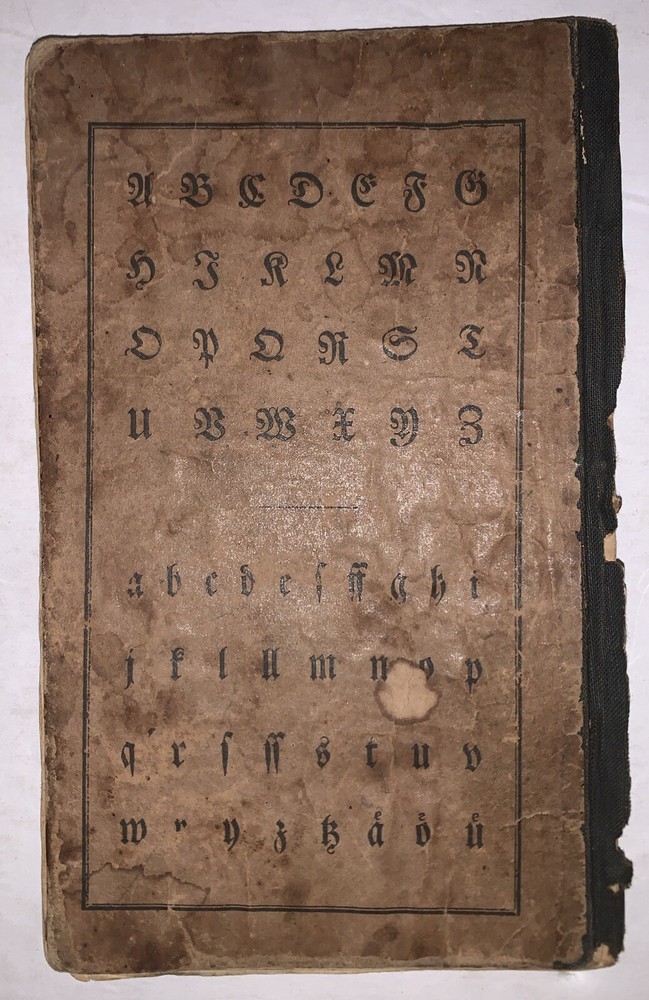 A B C D E F G
H J K L M N
O P Q R S T
U V W X Y Z
a b c d e f ff g h i
j k l ll m n o p
q r ſ ſſ s t u v
w x y z tz aͤ oͤ uͤ